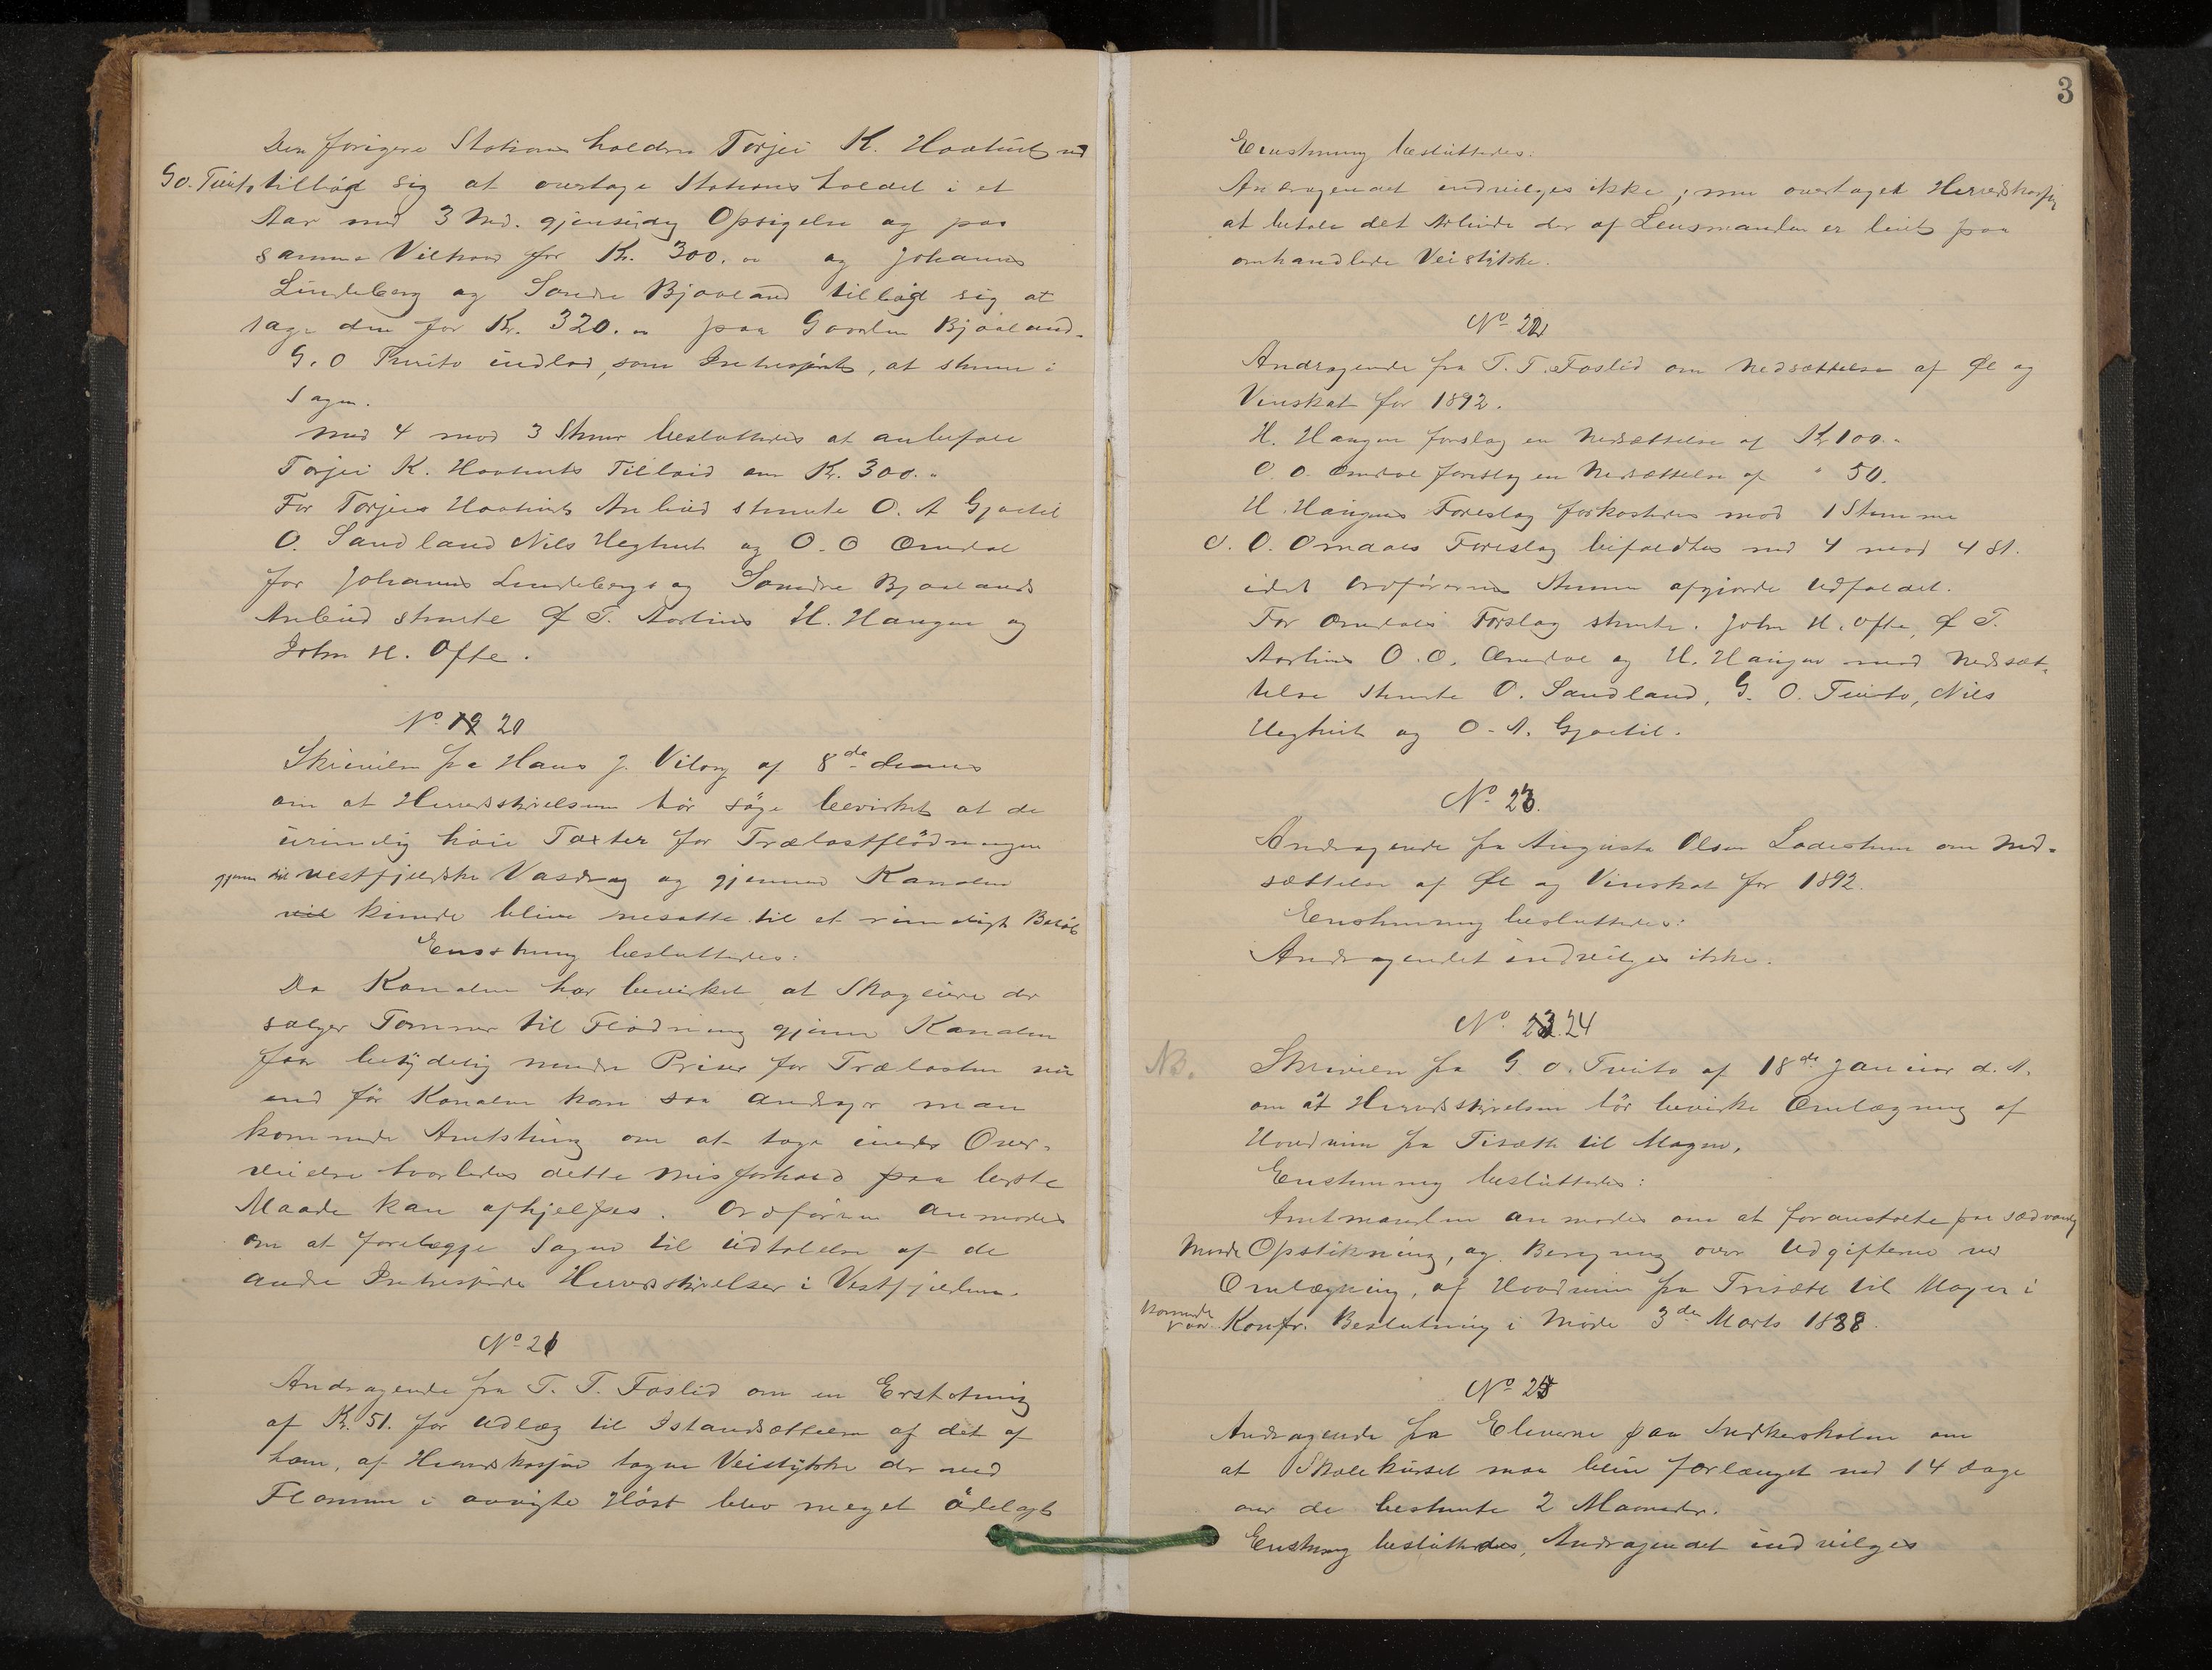 Den forigere Stationsholder Torjei K. Haatveit ved
G. O. Tveito tilbød sig at overtage Stationsholdet i et
Aar med 3 Md. gjensidig Opsigelse og paa
samme Vilkaar for Kr. 300.00 og Johannes
Lindeberg og Sondre Bjaaland tilbød sig at
tage den for Kr. 320.00 paa Gaarden Bjaaland.
G. O Tveito indlod, som Interesseret, at stemme i
Sagen.
Med 4 mod 3 Stemmer besluttedes at anbefale
Torjei K. Haatveits Tilbud om Kr. 300.
For Torjeis Haatveits Anbud stemte O. A Gjastil
O. Sandland Nils Hegtveit og O. O Omdal
for Johannes Lindebergs og Sondre Bjaalands
Anbud stemte Ø T. Aarlines H. Haugen og
John H. Ofte.
No. 19 20
Skrivelse fra Hans J. Vibory af 8de dennes
om at Herredsstyrelsen bør søge bevirket at de
urimelig høie Taxter for Trælastflødningen
gjennem det vestfjeldske Vasdrag og gjennem Kanalen
vil kunde blive nesatte til et rimeligt Beløb
Eensstemmig besluttedes:
Da Kanalen har bevirket at Skogeiere der
sælger Tømmer til Flødning gjennem Kanalen
faar betydelig mindre Priser for Trælasten nu
end før Kanalen kom saa andrager man
kommende Amtsthing om at tage under Over-
veielse hvorledes dette Misforhold paa beste
Maade kan afhjelpes. Ordføreren anmodes
om at forelægge Sagen til Udtalelse af de
andre Interesserede Herredsstyrelser i Vestfjeldene.
No 21
Andragende fra T. T. Faslid om en Erstatning
af Kr. 51. for Udlæg til Istandsættelse af det af
ham, af Herredskassen tagne Veistykke der ved
Flommen i avvigte Høst blev meget ødelagt
3
Eenstemmig besluttedes:
Andragendet indvilges ikke; men overtaget Herredskassen
at betale det Arbeide der af Lensmanden er leiet paa
omhandlede Veistykke.
No 22
Andragende fra T. T. Faslid om Nedsættelse af Øl og
Vinskat for 1892.
H. Haugen foreslog en Nedsættelse af Kr 100.
O. O. Omdal foreslog en Nedsættelse af " 50.
H. Haugens Foreslag forkastedes mod 1 Stemme
O. O. Omdals Foreslag bifaldtes med 4 mod 4 St.
idet Ordførerens Stemme afgjorde Udfaldet.
For Omdals Forslag stemte. John H. Ofte, Ø T.
Aarlines O. O. Omdal og H. Haugen mod Nedsæt-
telse stemte O. Sandland, G. O. Tveito, Nils
Hegtveit og O. A. Gjastil.
No 23.
Andragende fra Augusta Olsen Ladestuen om Ned-
sættelse af Øl og Vinskat for 1892.
Eenstemmig besluttedes:
Andragendet indvilges ikke.
No. 23. 24
NB. Skrivelse fra G. O. Tveito af 18de Januar d. A.
om at Herredsstyrelsen bør bevirke Omlægning af
Hovdveien fra Trisæth til Mogen.
Eenstemmig besluttedes:
Amtmanden anmodes om at foranstalte paa sædvanlig
Maade Opstikning, og Beregning over Udgifterne ved
Omlægning, af Hovdveien fra Trisæth til Mogen i
kommende Vaar. Konfr. Beslutning i Møde 3de Marts 1888.
No 25
Andragende fra Eleverne paa Snedkerskolen om
at Skolekurset maa blive forlænget med 14 dage
over de bestemte 2 Maaneder.
Eenstemmig besluttedes, Andragendet indvilges